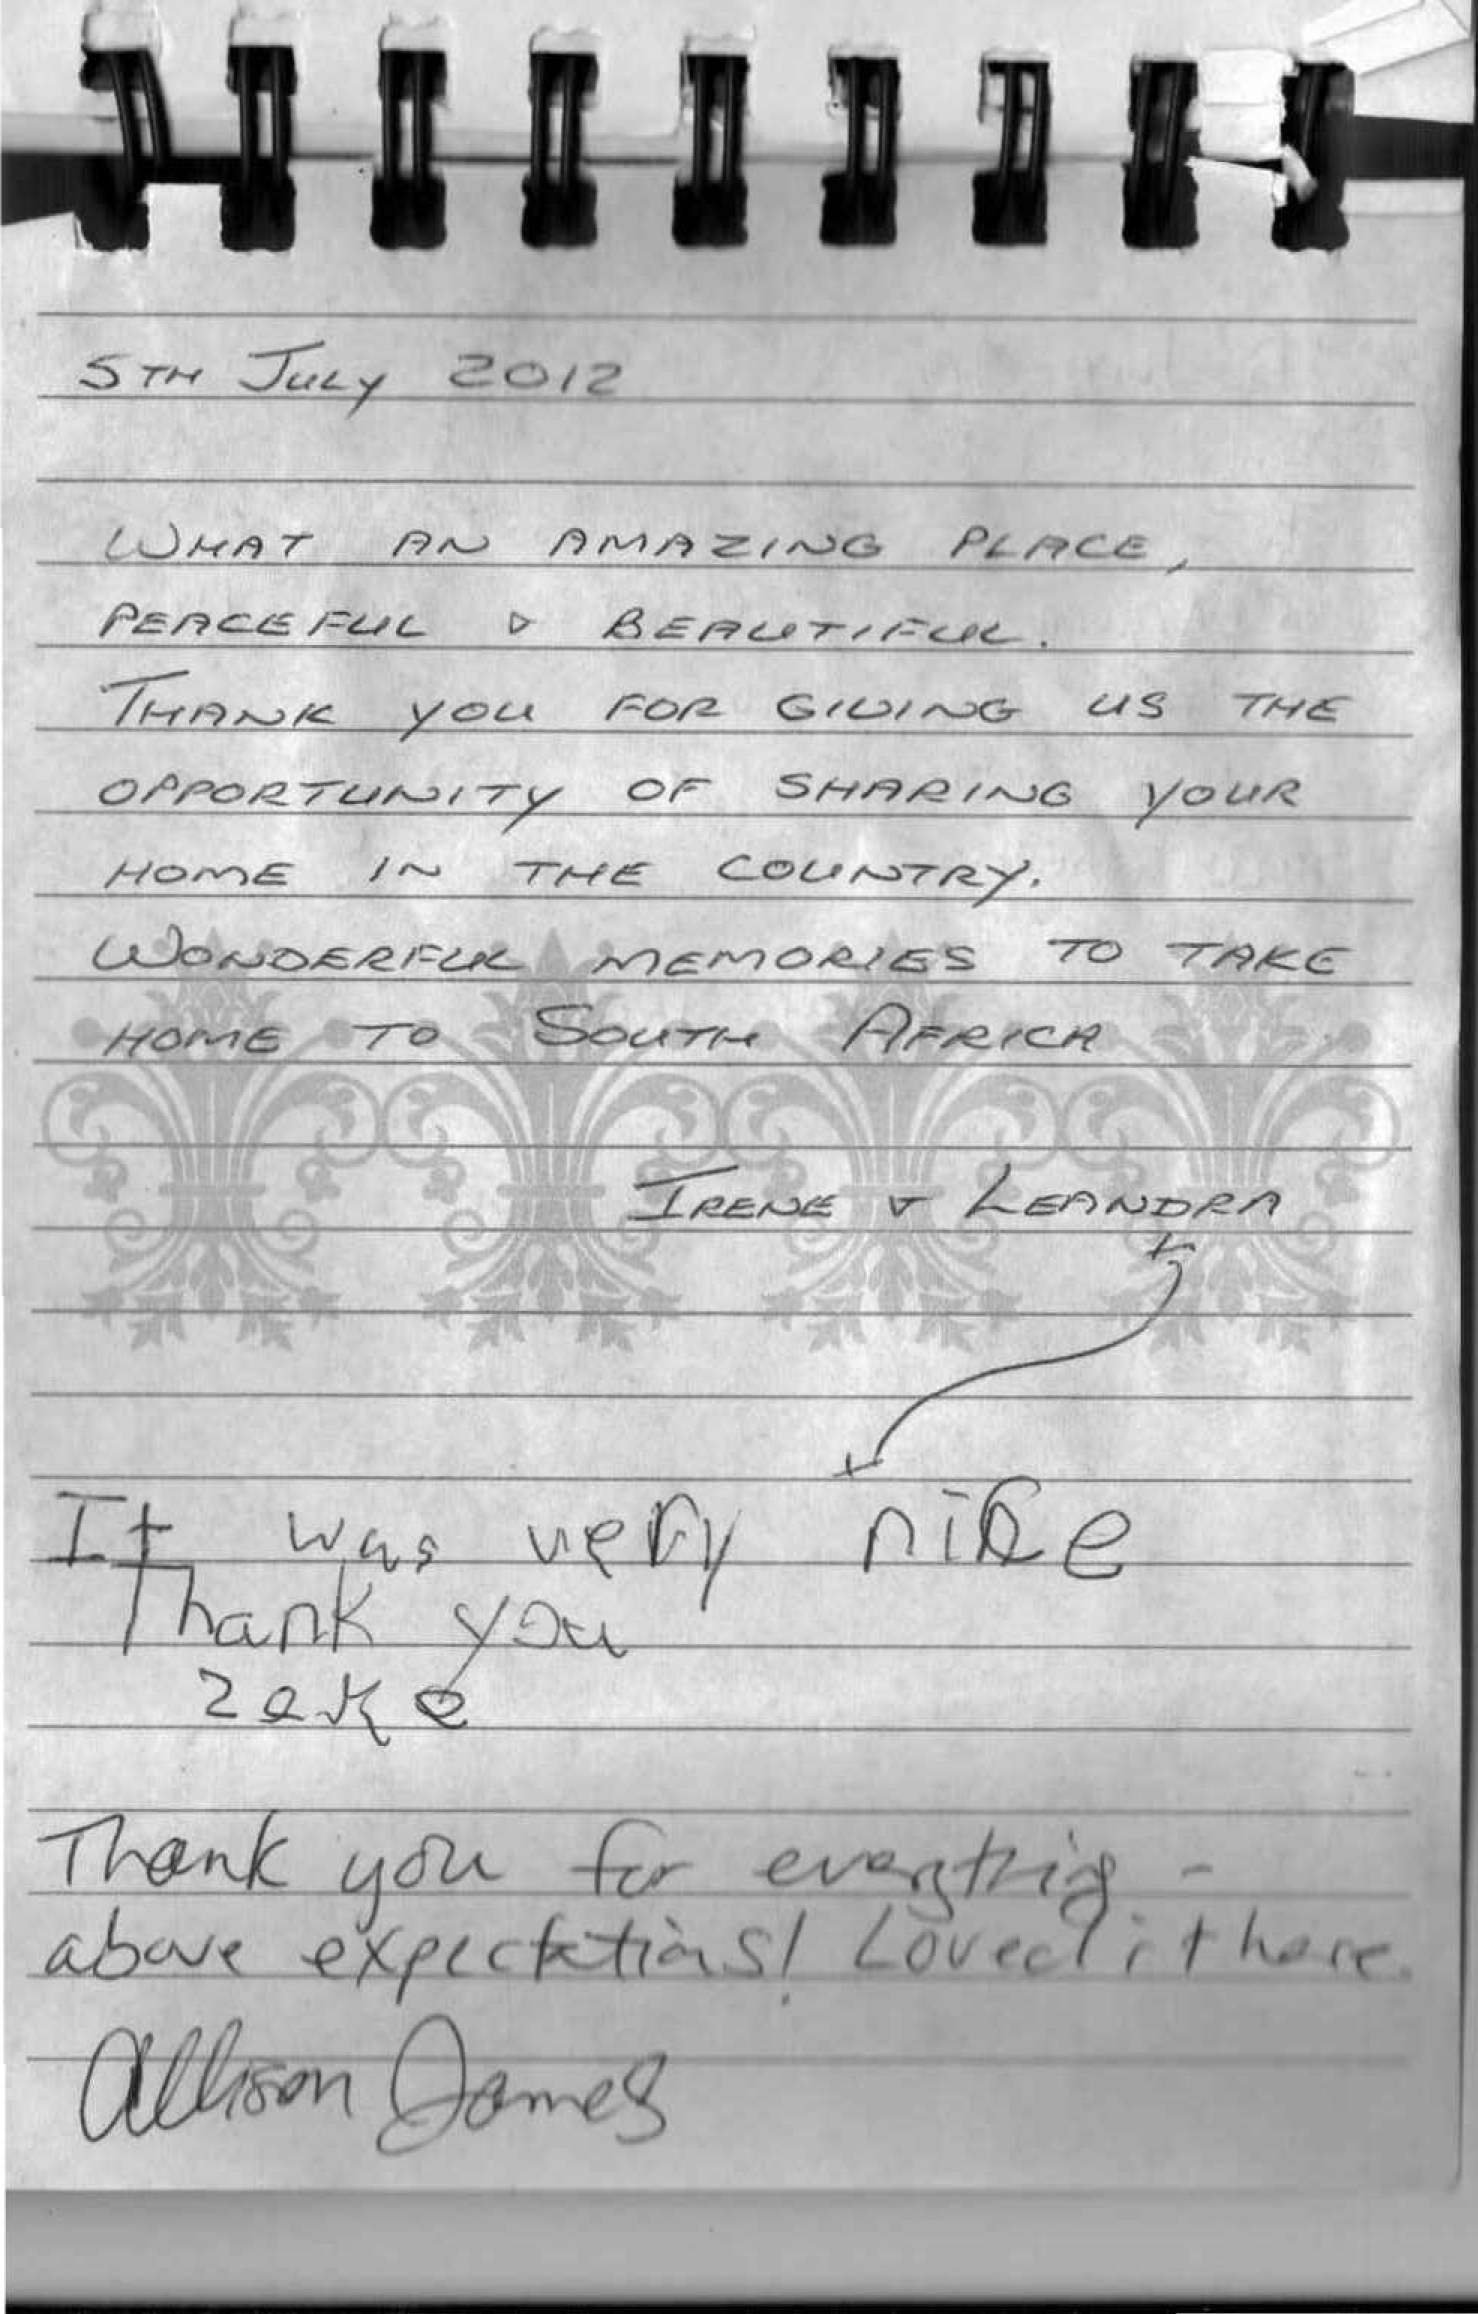 5TH JULY 2012
WHAT AN AMAZING PLACE,
PEACEFUL & BEAUTIFUL.
THANK YOU FOR GIVING US THE
OPPORTUNITY OF SHARING YOUR
HOME IN THE COUNTRY.
WONDERFUL MEMORIES TO TAKE
HOME TO SOUTH AFRICA
IRENE & LEANDRA
It was very nice
Thank you
zeke
Thank you for everything -
above expectations! Loved it here.
Allison James